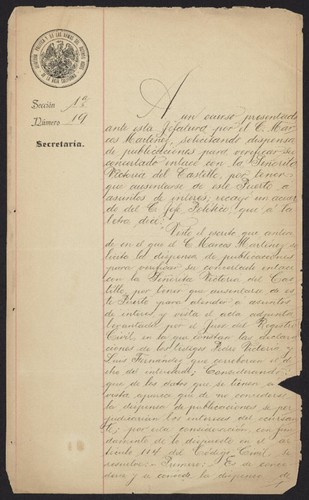 Sección 1ª
Número 19
Secretaría.
A un curso presentado
ante esta Jefatura por el C. Mar-
cos Martínez, solicitando dispensa
de publicaciones para verificar su
concertado enlace con la Señorita
Victoria del Castillo, por tener
que ausentarse de este Puerto a
asuntos de interés, recayó un acuer-
do del C. Jefe Político, que á la
letra dice:
Visto el escrito que antece-
de en el que el C. Marcos Martínez so-
licita la dispensa de publicaciones
para verificar su concertado enlace
con la Señorita Victoria del Cas-
tillo, por tener que ausentarse de es-
te Puerto para atender a asuntos
de interés y vista el acta adjunta
levantada por el Juez del Registro
Civil en la que constan las declara-
ciones de los testigos Pedro Victoria y
Luis Fernández que corroboran el di-
cho del interesado; Considerando:
que de los datos que se tienen a la
vista, aparece que de no concederse
la dispensa de publicaciones se per-
judicarían los intereses del solicitan-
te; por esta consideración con fun-
damento de lo dispuesto en el ar-
tículo 114 del Código Civil, se
resuelve: Primero: Es de conce-
derse y se concede la dispensa de